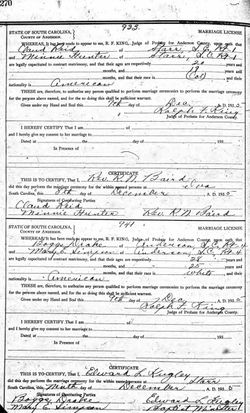 270
933
STATE OF SOUTH CAROLINA,
COUNTY OF ANDERSON.
MARRIAGE LICENSE
WHEREAS, It has been made to appear to me, R. P. KING, Judge of Probate for Anderson County, upon oath, that
Claud Reid Starr, S.C. Rt 1
and Minnie Hunter Starr, S.C. Rt 1
are legally capacitated to contract matrimony, and that their ages are respectively 22
years, months, and
years, months, and that their race is (Col) and
nationality is American
THESE ARE, THEREFORE, to authorize any qualified person to perform marriage ceremonies to perform the marriage ceremony
for the persons above named, and for the so doing this shall be sufficient warrant.
Given under my Hand and Seal this 7th Dec A. D. 193
Ralph P. King
Judge of Probate for Anderson County.
I HEREBY CERTIFY, That I am of
and I hereby give my consent to her marriage to
Dated at this day of A. D. 193
In Presence of
CERTIFICATE
THIS IS TO CERTIFY, That I, Rev. R. N. Baird
did perform the marriage ceremony for the within named persons at Iva
South Carolina, this 8th day of December A. D. 193
Signature of Contracting Parties
Claud Reid
Minnie Hunter Rev. R. N. Baird
941
STATE OF SOUTH CAROLINA,
COUNTY OF ANDERSON.
MARRIAGE LICENSE
WHEREAS, It has been made to appear to me, R. P. KING, Judge of Probate for Anderson County, upon oath, that
Boggy Drake Anderson, S.C. Rt 4
and Mary E. Simpson Anderson, S.C. Rt 4
are legally capacitated to contract matrimony, and that their ages are respectively 28
years, months, and 25
years, months, and that their race is white and
nationality is American
THESE ARE, THEREFORE, to authorize any qualified person to perform marriage ceremonies to perform the marriage ceremony
for the persons above named, and for the so doing this shall be sufficient warrant.
Given under my Hand and Seal this 9th Dec A. D. 193
Ralph P. King
Judge of Probate for Anderson County.
I HEREBY CERTIFY, That I am of
and I hereby give my consent to her marriage to
Dated at this day of A. D. 193
In Presence of
CERTIFICATE
THIS IS TO CERTIFY, That I, Edward L.
did perform the marriage ceremony for the within named persons at Starr
South Carolina, this day of December A. D. 193
Signature of Contracting Parties
Boggy Drake Edward L.
Mary E. Simpson Baptist Minister